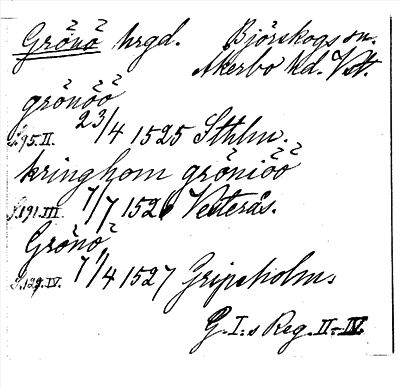 Grönö hrgd. Björskogs sn.
Åkerbo hd. Vstm.
grönöö
S.95.II. 23/4 1525 Sthlm.
kringhom gröniöö
S.191.III. 7/7 1526 Vesterås.
Grönö
S.129.IV. 7/4 1527 Gripsholm.
G. I:s Reg. II-IV.